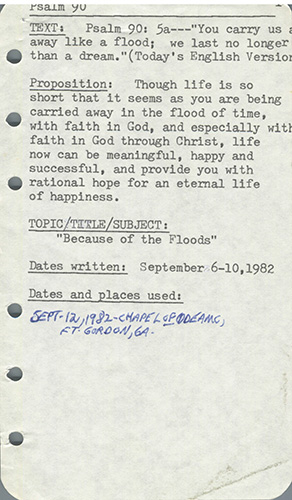 Psalm 90
TEXT: Psalm 90: 5a---"You carry us a
away like a flood; we last no longer
than a dream."(Today's English Version
Proposition: Though life is so
short that it seems as you are being
carried away in the flood of time,
with faith in God, and especially with
faith in God through Christ, life
now can be meaningful, happy and
successful, and provide you with
rational hope for an eternal life
of happiness.
TOPIC/TITLE/SUBJECT:
"Because of the Floods"
Dates written: September 6-10,1982
Dates and places used:
SEPT-12,1982-CHAPEL
FT. GORDON, GA.